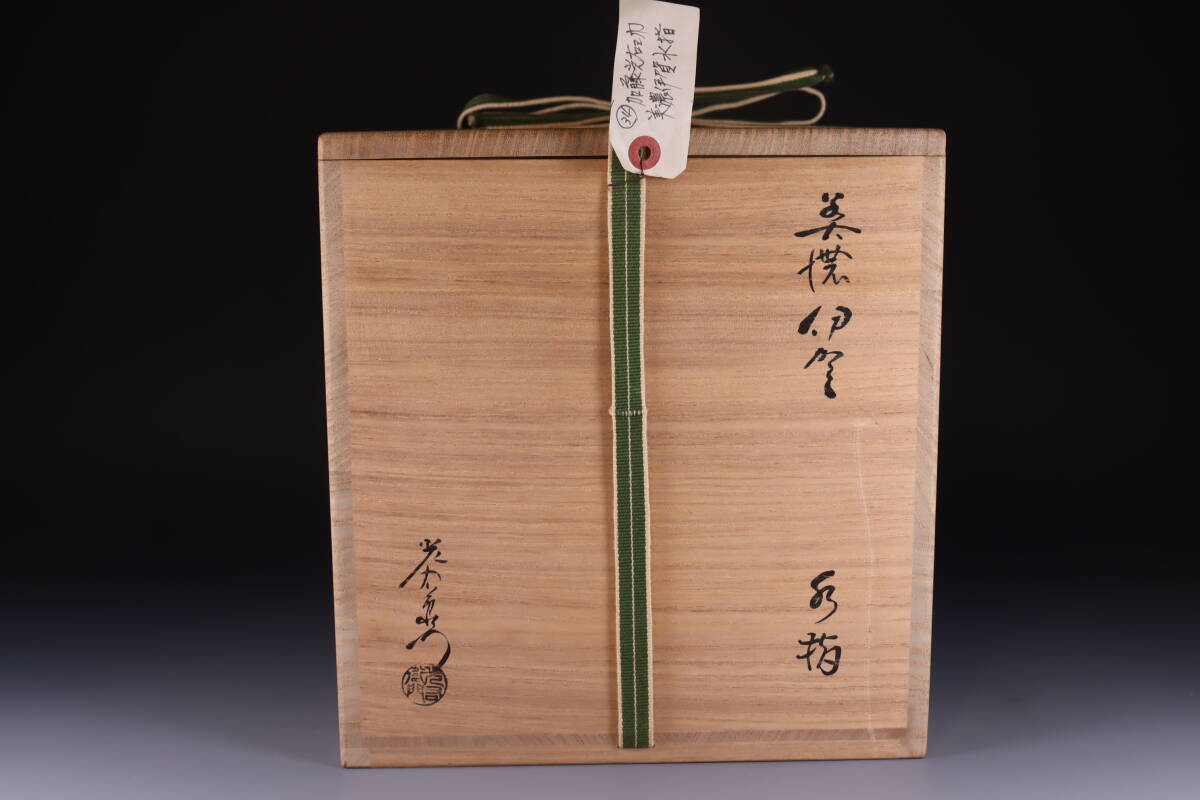 加藤光右エ力
美濃伊賀水指
美濃伊賀
水指
光右衛門